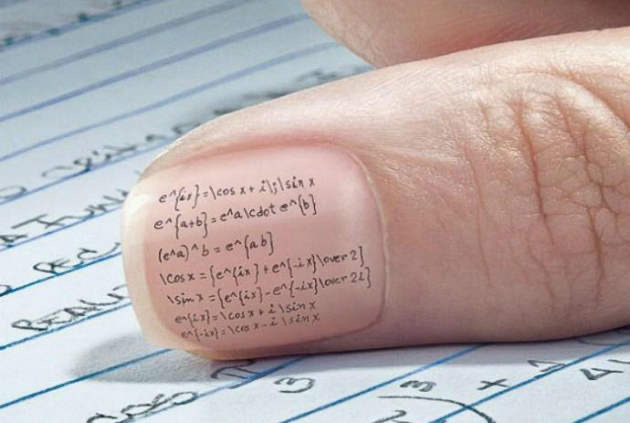 e^{ix}=\cos x+i\;\sin x
e^{a+b}=e^a\cdot e^{b}
(e^a)^b=e^{ab}
\cos x={e^{ix}+e^{-ix}\over 2}
\sin x={e^{ix}-e^{-ix}\over 2i}
e^{ix}=\cos x+i\sin x
e^{-ix}=\cos x-i\sin x
3
3 +